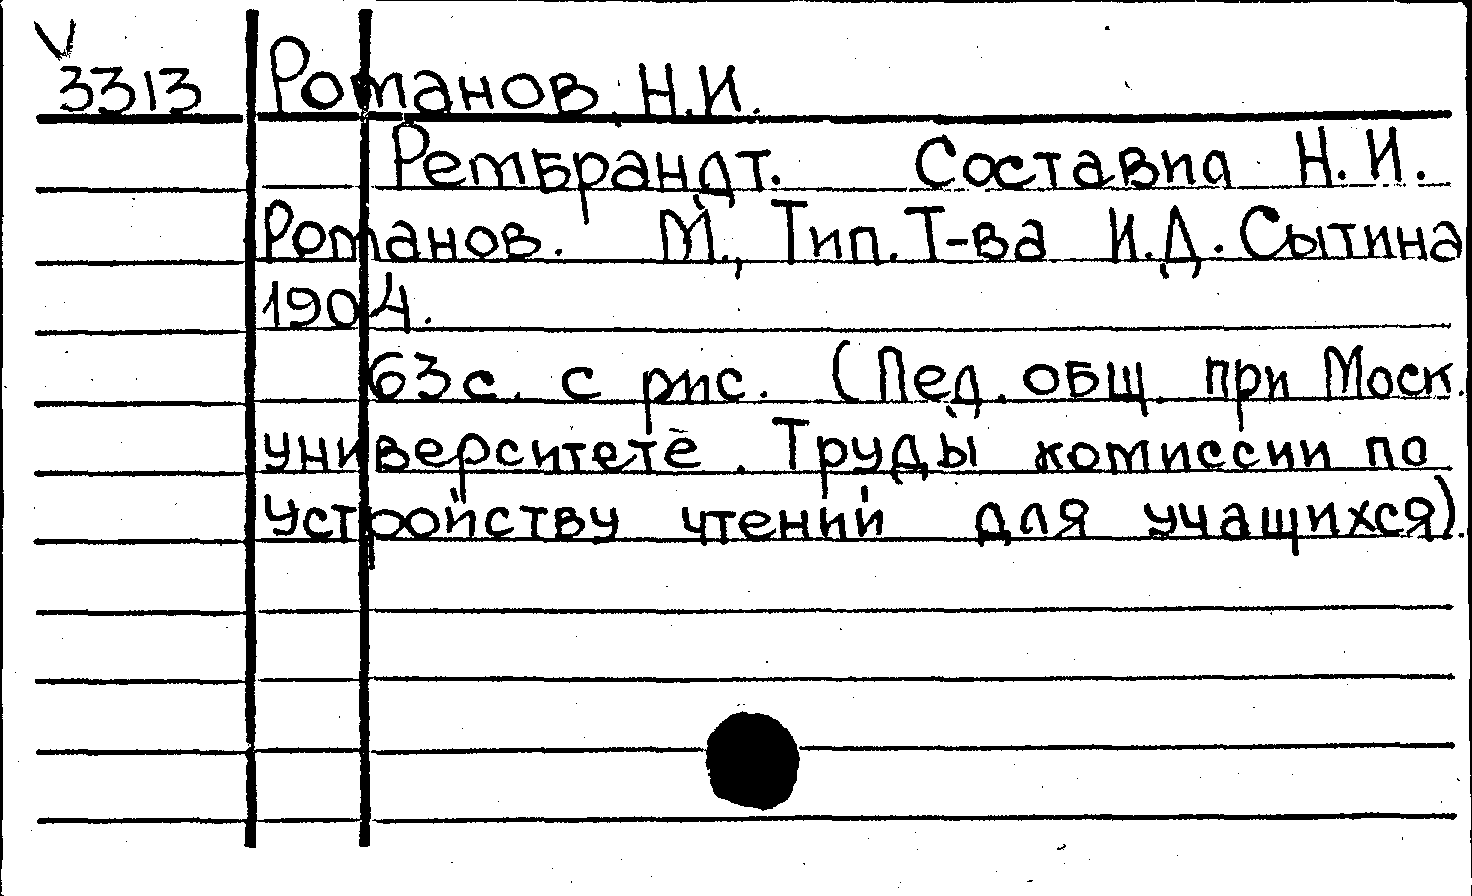 V
3313 Романов Н.И.
Рембрандт. Составил Н.И.
Романов. М., Тип. Т-ва И.Д. Сытина
1904.
63с. с рис. (Пед. общ. при Моск.
университете. Труды комиссии по
устройству чтений для учащихся).